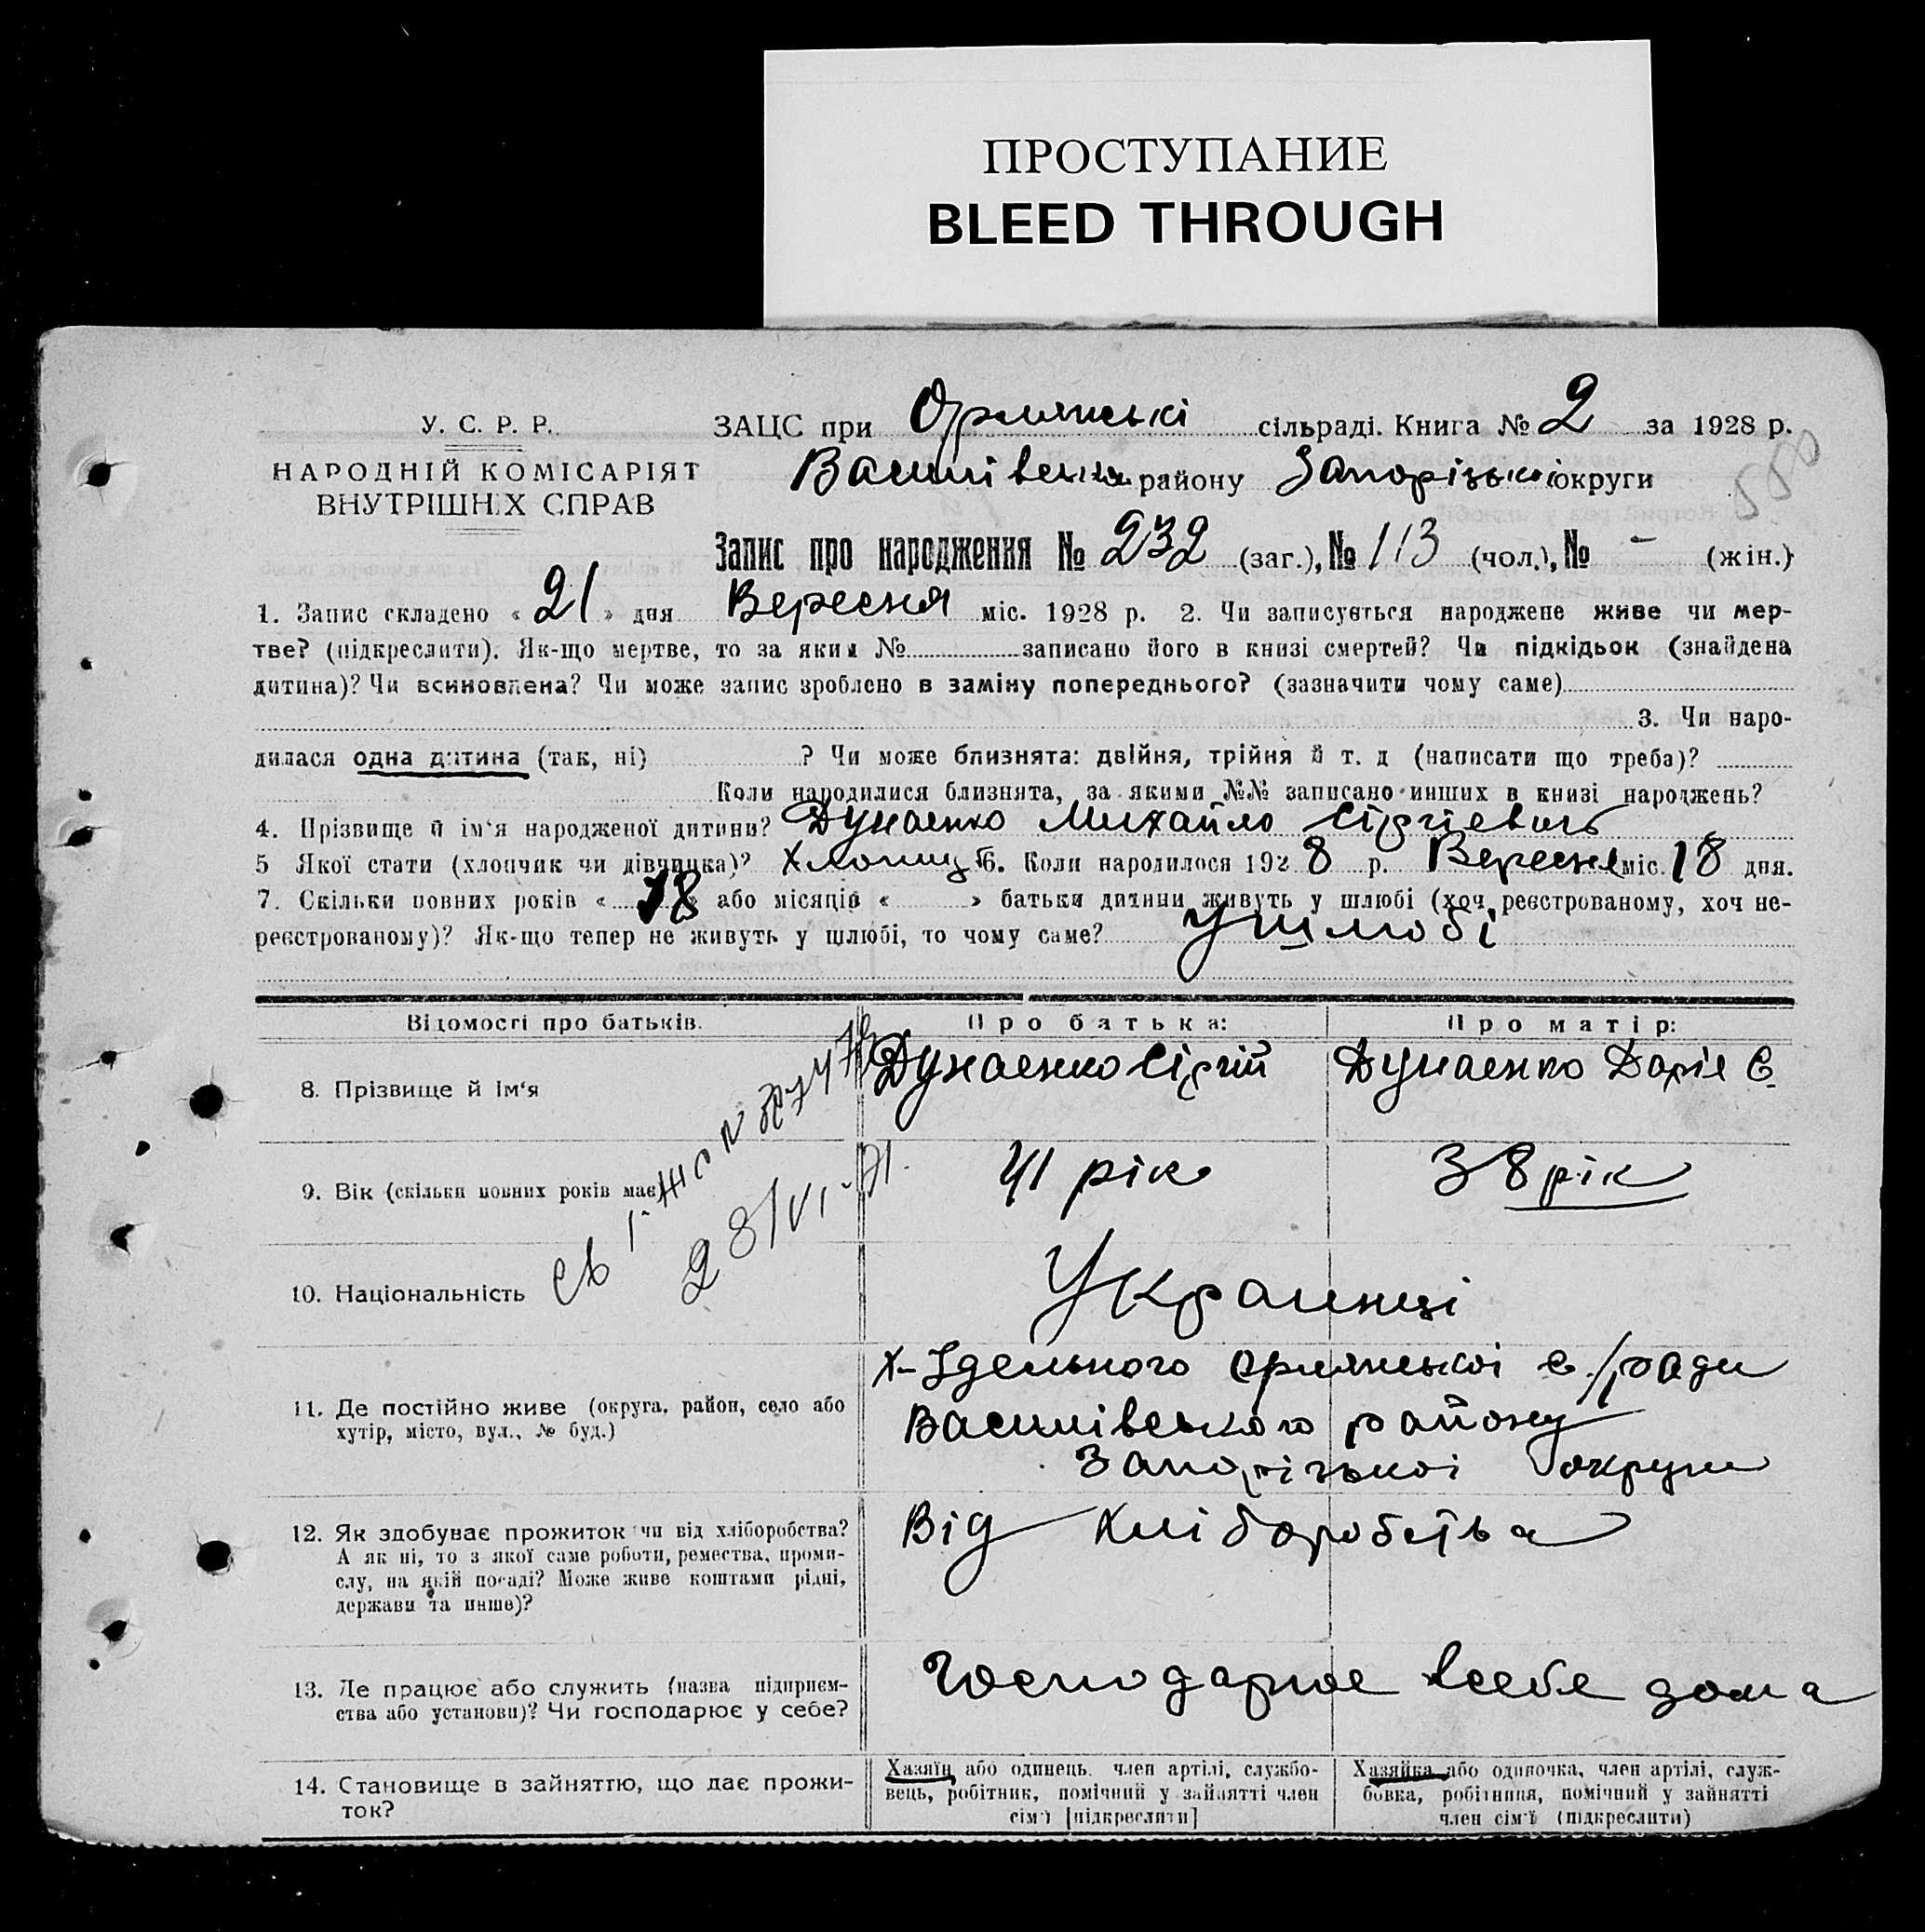 ПРОСТУПАНИЕ
BLEED THROUGH
У. С. Р. Р.
НАРОДНІЙ КОМІСАРІЯТ
ВНУТРІШНІХ СПРАВ
ЗАЦС при Орлянські сільраді. Книга № 2 за 1928 р.
Василівська району Запорізькоі округи
550
Запис про народження № 232 (заг.), № 113 (чол.), № - (жін.)
1. Запис складено « 21 » дня Вересня міс. 1928 р. 2. Чи записується народжене живе чи мер-
тве? (підкреслити). Як-що мертве, то за яким № записано його в книзі смертей? Чи підкідьок (знайдена
дитина)? Чи всиновлена? Чи може запис зроблено в заміну попереднього? (зазначити чому саме)
3. Чи наро-
дилася одна дитина (так, ні) ? Чи може близнята: двійня, трійня й т. д (написати що треба)?
Коли народилися близнята, за якими №№ записано инших в книзі народжень?
4. Прізвище й ім'я народженої дитини? Дунаенко Михайло Сіргіевичь
5 Якої стати (хлопчик чи дівчинка)? Хлопиць 6. Коли народилося 1928 р. Вересня міс. 18 дня.
7. Скільки повних років « 18 » або місяців « » батьки дитини живуть у шлюбі (хоч реєстрованому, хоч не-
реєстрованому)? Як-що тепер не живуть у шлюбі, то чому саме? У шлюбі
Відомості про батьків. Про батька: Про матір:
8. Прізвище й ім'я Дунаенко Сіргій Дунаенко Даріе Є.
9. Вік (скільки повних років має 41 рік 38 рік
28/VI-71.
10. Національність Украинці
11. Де постійно живе (округа, район, село або
хутір, місто, вул., № буд.)
х-Ідельного Орлянськоі с/ради
Василівського району
Запорізькоі округи
12. Як здобуває прожиток чи від хліборобства?
А як ні, то з якої саме роботи, ремества, проми-
слу, на якій посаді? Може живе коштами рідні,
держави та инше)?
Від хліборобства
13. Де працює або служить (назва підприєм-
ства або установи)? Чи господарює у себе?
Господарює всебе дома
14. Становище в зайняттю, що дає прожи-
ток?
Хазяїн або одинець. член артілі, службо-
вець, робітник, помічний у зайнятті член
сім'ї [підкреслити]
Хазяйка або одиночка, член артілі, служ-
бовка, робітниця, помічний у зайнятті
член сім'ї (підкреслити)